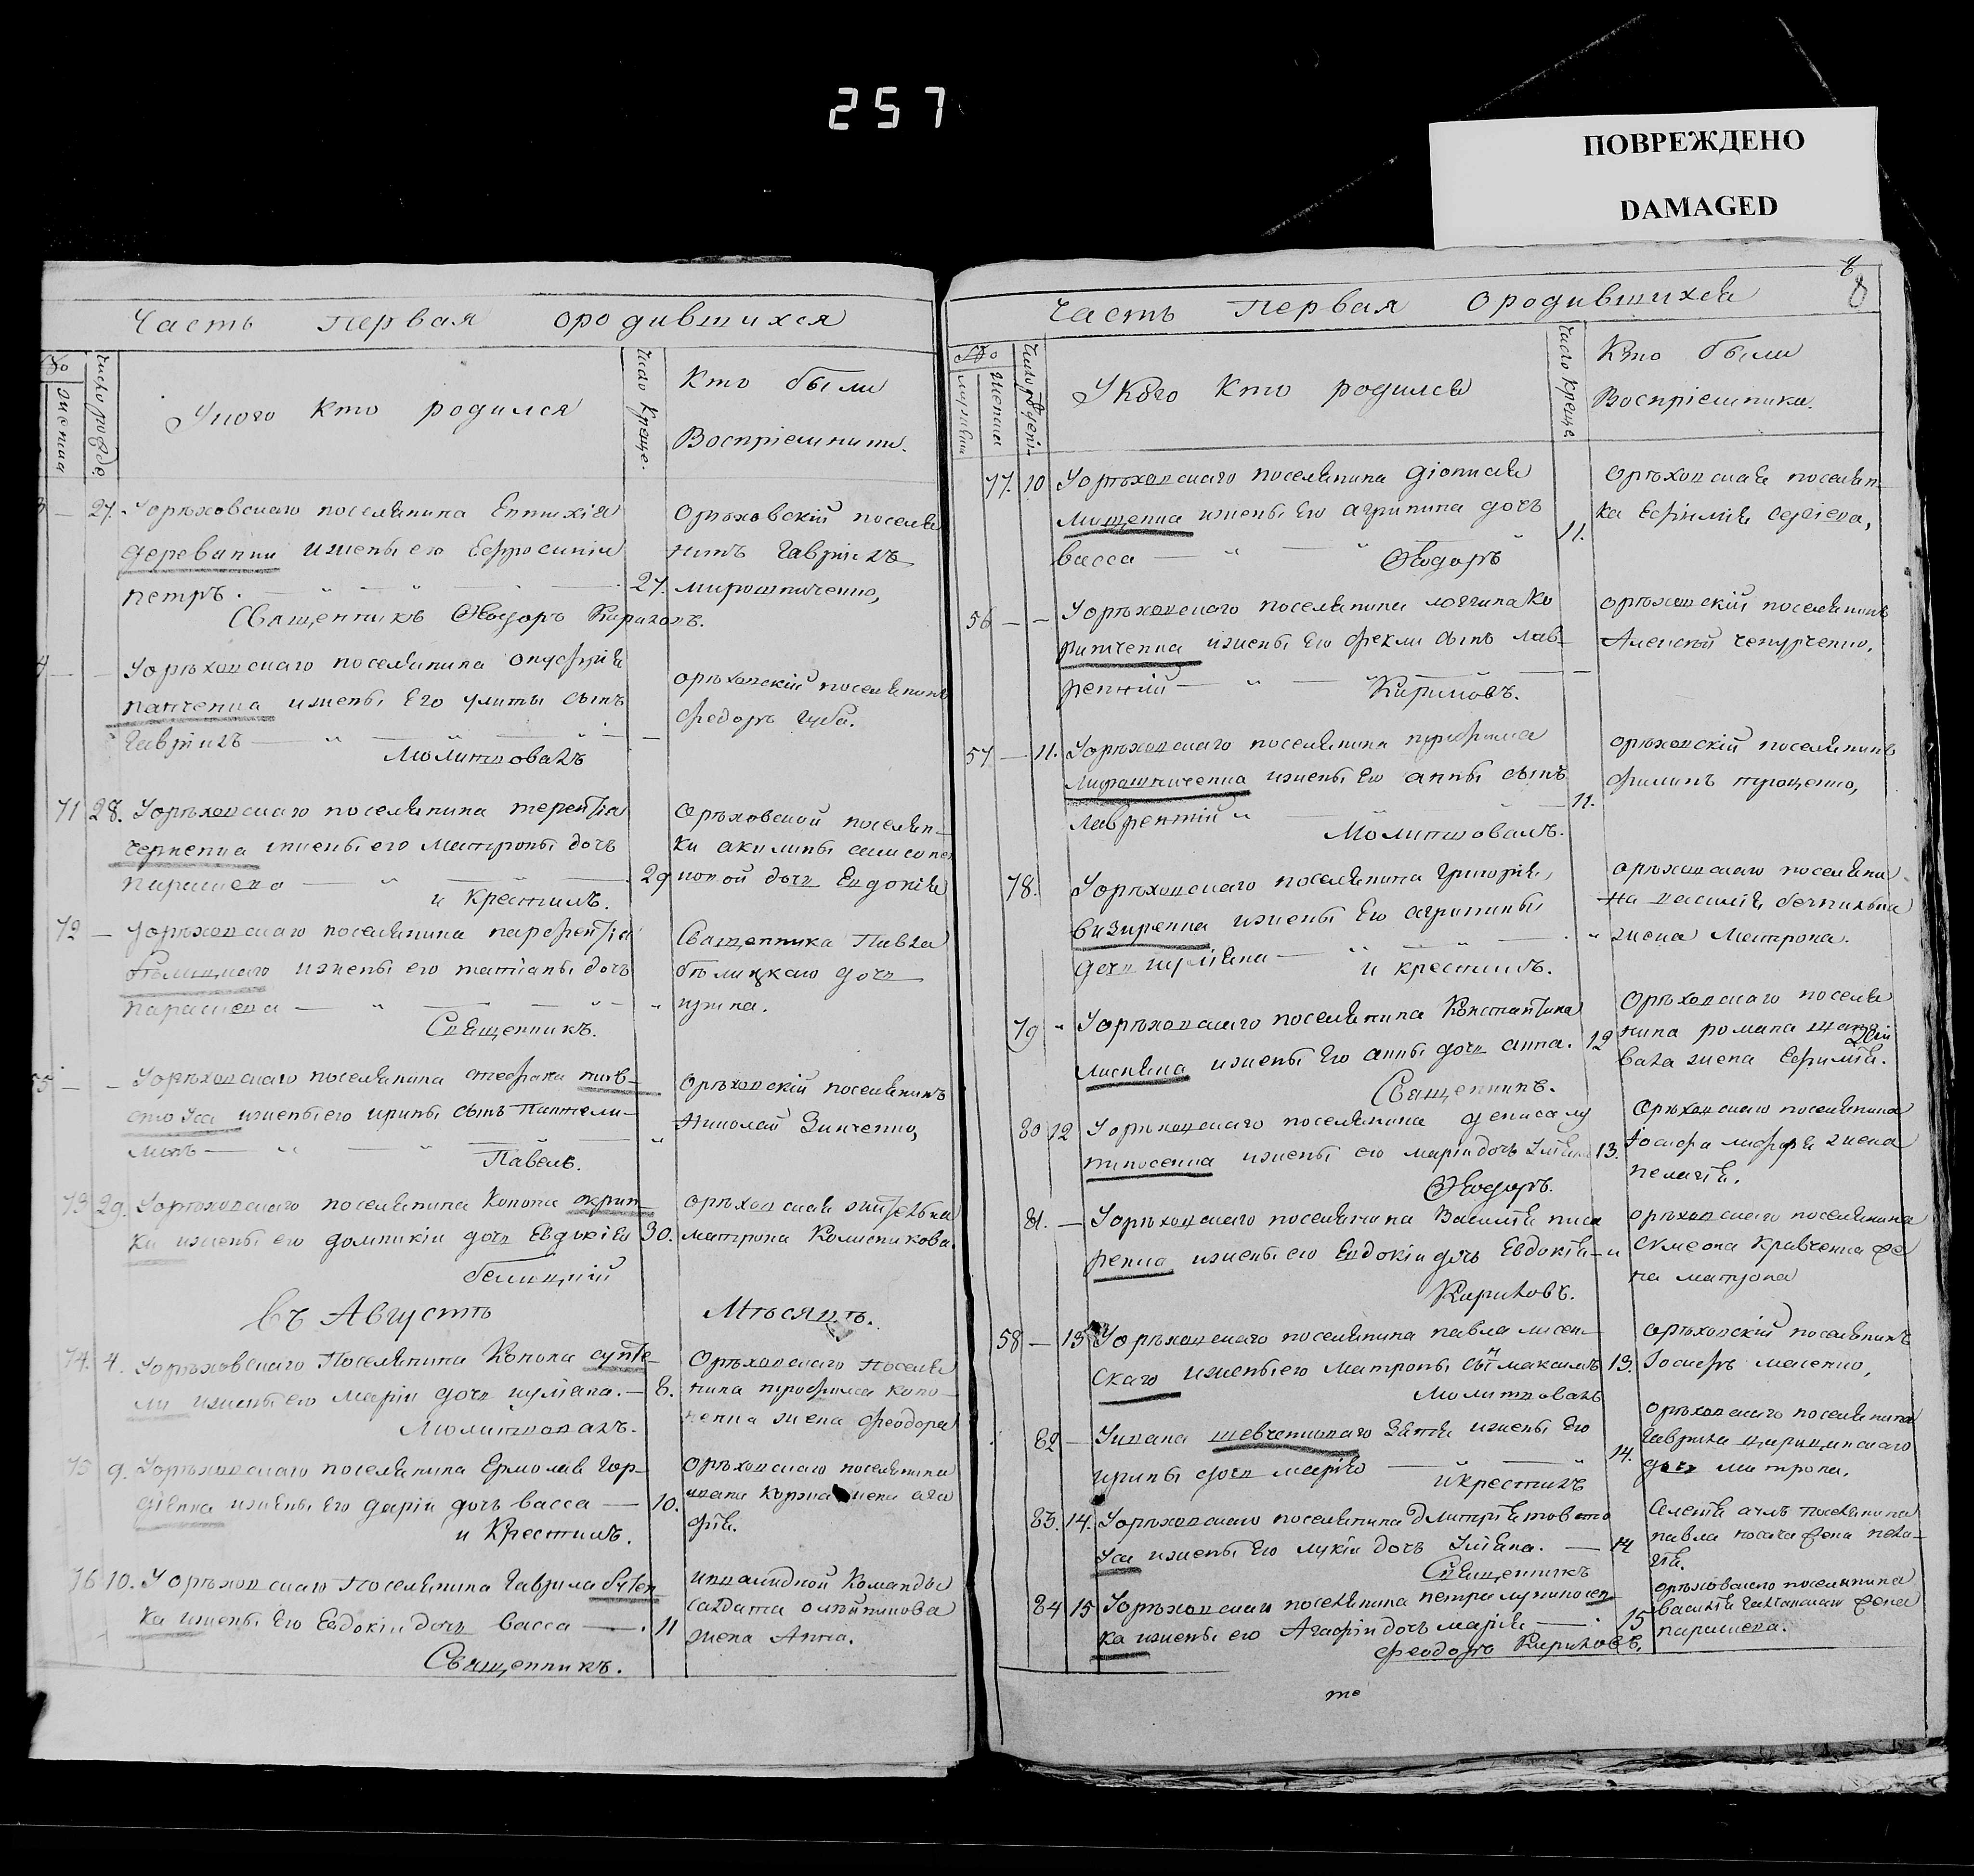 257
ПОВРЕЖДЕНО
DAMAGED
Часть первая ородившихся
Число рожде.
женска
Укого кто родился
Число Креще.
Кто были
Воспріемники.
27. Уорѣховскаго поселянина Евтихія
деревянки ижены его Ефросиніи
петръ. 27.
Священникъ Ѳеодоръ Кириловъ.
Орѣховскій поселя
нинъ Гавріилъ
мирошниченко,
Уорѣховскаго поселянина онуфрія
панченка ижены Его улиты сынъ
Гавріилъ
Молитвовалъ
орѣховскій поселянинъ
федоръ губа.
71 28. Уорѣховскаго поселянина терентія
черненка ижены его Матроны дочь
параскева 29
и Крестилъ.
Орѣховской поселян-
ки акилины
новой дочь Евдокія
72 — Уорѣховскаго поселянина парфентія
бѣлицкаго ижены его татіаны дочь
параскева
Священникъ.
Священника Павла
бѣлицкаго дочь
ирина.
55 — Уорѣховскаго поселянина стефана товс-
тоуса ижены его ирины сынъ Пантели-
монъ
Павелъ.
Орѣховскій поселянинъ
Николай Зинченко,
73 29. Уорѣховскаго поселянина Конона скрип-
ки ижены его домникіи дочь Евдокія 30.
белицкій
орѣховская жительна
матрона Колесникова.
Въ Августѣ Мѣсяцѣ.
74. 4. Уорѣховскаго Поселянина Конона
ижены его Маріи дочь иуліана. — 8.
Молитвовалъ.
Орѣховскаго Поселя
нина трофима коно-
ненка жена феодора
75 9. Уорѣховскаго поселянина Ермолая Гор-
діенка ижены Его даріи дочь васса — 10.
и Крестилъ.
Орѣховскаго поселянина
ивана коржа жена ага
фія.
76 10. Уорѣховскаго Поселянина Гаврила бутен
ка ижены Его Евдокіи дочь васса — 11
Священникъ.
инвалидной Команды
Салдата олѣйникова
жена Анна.
Часть Первая ородившихся
8
Укого кто родился
Число Креще
Кто были
Воспріемники.
77. 10 Уорѣховскаго поселянина діонисія
Мищенка ижены Его агрипина дочь
васса 11.
Ѳеодоръ
Орѣховская поселян-
ка Ефимія
56 — — Уорѣховскаго поселянина логгина Ко
ринченка ижены Его феклы сынъ лав-
рентій
Кириловъ.
орѣховскій поселянинъ
Алексѣй чепурченко,
57 — 11. Уорѣховскаго поселянина трофима
Мирошниченка ижены Его анны сынъ
лаврентій 11.
Молитвовалъ.
орѣховскій поселянинъ
филипъ троценко,
78. Уорѣховскаго поселянина Григорія
визиренка ижены Его агрипины
дочь иуліана
и крестилъ.
орѣховскаго поселяни
на василія
жена Матрона.
79 Уорѣховскаго поселянина Константина
ижены Его анны дочь анна. 12
Священникъ.
Орѣховскаго поселя
нина романа
вала жена Ефимія.
80 12 Уорѣховскаго поселянина дениса лу
пиносенка ижены его маріи дочь Уліана 13.
Ѳеодоръ.
Орѣховскаго поселянина
Іосифа жена
пелагія.
81. — Уорѣховскаго поселянина Василія писа
ренка ижены его Евдокіи дочь Евдокія — „
Кириловъ.
орѣховскаго поселянина
Симеона Кравченка же
на матрона
58 — 13 Уорѣховскаго поселянина павла лисен-
скаго ижены его Матроны сынъ максимъ 13.
Молитвовалъ
орѣховскій поселянинъ
Іосифъ
82 — Уивана шевченковаго Зятя ижены Его
ирины дочь марія 14.
икрестилъ
Орѣховскаго поселянина
Гаврила
дочь матрона.
83. 14. Уорѣховскаго поселянина Димитрія товсто
уса ижены Его лукіи дочь Уліана. — 14
Священникъ
поселянина
павла носача жена пела-
гія.
84 15 Уорѣховскаго поселянина петра лупиносен
ка ижены его Агафіи дочь марія — 15
Феодоръ Кириловъ,
орѣховскаго поселянина
василія жена
параскева.